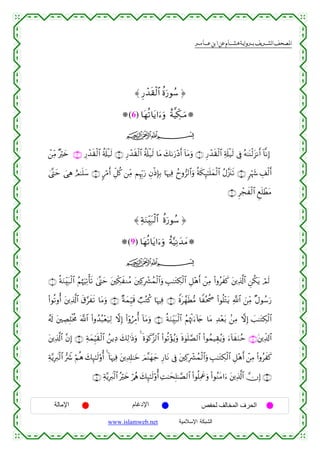 المصحف الشريف برواية هشام عن ابن عامر
﴿ سُورَةُ ٱلْقَدْرِ ﴾
*مَكِّيَّةٌ وَءَايَاتُهَا (6)*
بِسْمِ ٱللَّهِ ٱلرَّحْمَٰنِ ٱلرَّحِيمِ
إِنَّآ أَنزَلْنَٰهُ فِي لَيْلَةِ ٱلْقَدْرِ ۝ وَمَآ أَدْرَىٰكَ مَا لَيْلَةُ ٱلْقَدْرِ ۝ لَيْلَةُ ٱلْقَدْرِ ۝ خَيْرٌ مِّنْ
أَلْفِ شَهْرٍ ۝ تَنَزَّلُ ٱلْمَلَٰٓئِكَةُ وَٱلرُّوحُ فِيهَا بِإِذْنِ رَبِّهِم مِّن كُلِّ أَمْرٍ ۝ سَلَٰمٌ هِيَ حَتَّىٰ
مَطْلَعِ ٱلْفَجْرِ ۝
﴿ سُورَةُ ٱلْبَيِّنَةِ ﴾
*مَدَنِيَّةٌ وَءَايَاتُهَا (9)*
بِسْمِ ٱللَّهِ ٱلرَّحْمَٰنِ ٱلرَّحِيمِ
لَمْ يَكُنِ ٱلَّذِينَ كَفَرُوا۟ مِنْ أَهْلِ ٱلْكِتَٰبِ وَٱلْمُشْرِكِينَ مُنفَكِّينَ حَتَّىٰ تَأْتِيَهُمُ ٱلْبَيِّنَةُ ۝
رَسُولٌ مِّنَ ٱللَّهِ يَتْلُوا۟ صُحُفًا مُّطَهَّرَةً ۝ فِيهَا كُتُبٌ قَيِّمَةٌ ۝ وَمَا تَفَرَّقَ ٱلَّذِينَ أُوتُوا۟
ٱلْكِتَٰبَ إِلَّا مِنۢ بَعْدِ مَا جَآءَتْهُمُ ٱلْبَيِّنَةُ ۝ وَمَآ أُمِرُوٓا۟ إِلَّا لِيَعْبُدُوا۟ ٱللَّهَ مُخْلِصِينَ لَهُ
ٱلدِّينَ ۝ حُنَفَآءَ وَيُقِيمُوا۟ ٱلصَّلَوٰةَ وَيُؤْتُوا۟ ٱلزَّكَوٰةَ ۚ وَذَٰلِكَ دِينُ ٱلْقَيِّمَةِ ۝ إِنَّ ٱلَّذِينَ
كَفَرُوا۟ مِنْ أَهْلِ ٱلْكِتَٰبِ وَٱلْمُشْرِكِينَ فِي نَارِ جَهَنَّمَ خَٰلِدِينَ فِيهَآ ۚ أُو۟لَٰٓئِكَ هُمْ شَرُّ ٱلْبَرِيَّةِ
۝ إِنَّ ٱلَّذِينَ ءَامَنُوا۟ وَعَمِلُوا۟ ٱلصَّٰلِحَٰتِ أُو۟لَٰٓئِكَ هُمْ خَيْرُ ٱلْبَرِيَّةِ ۝
الحرف المخالف لحفص الإدغام الإمالة
الشبكة الإسلامية www.islamweb.net